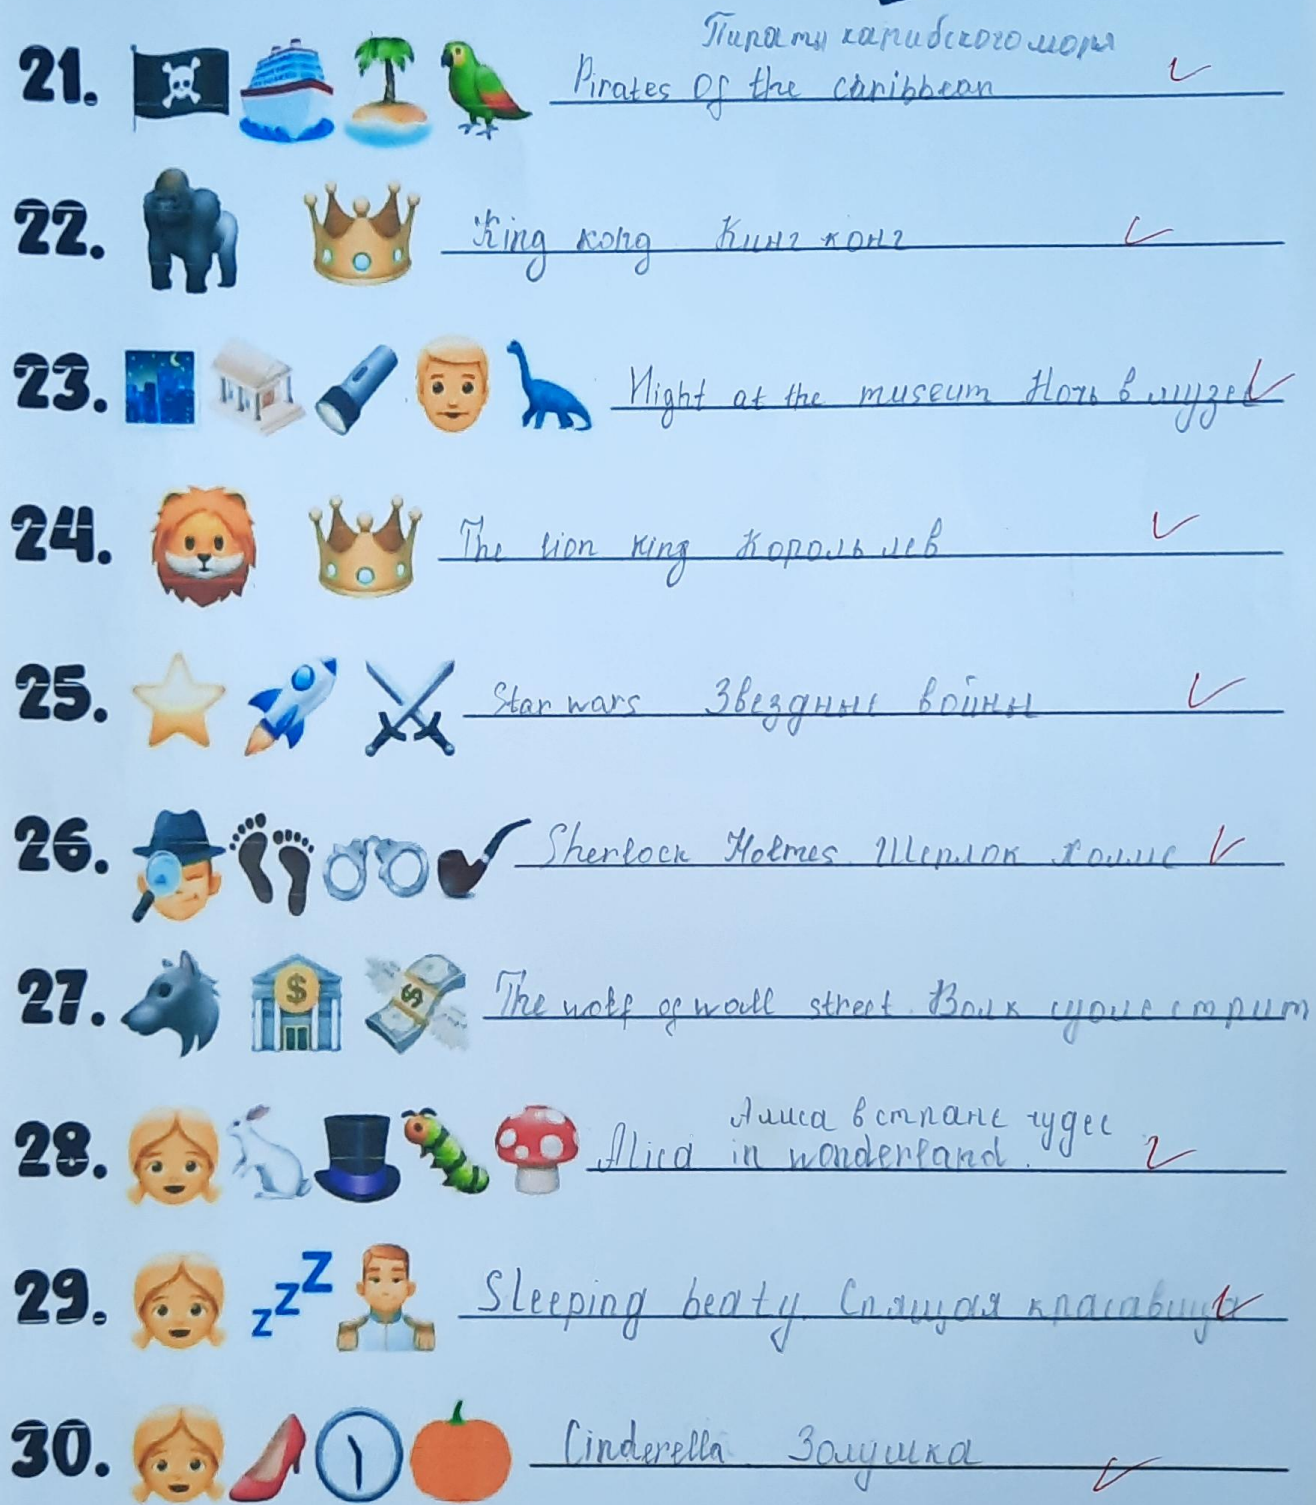 Пираты карибского моря
21. Pirates Of the caribbean
22. King kong Кинг конг
23. Night at the museum Ночь в музее
24. The lion King Король лев
25. Star wars Звездные войны
26. Sherlock Holmes. Шерлок холмс
27. The wolf of wall street. Волк суолс стрит
Алиса в стране чудес
28. Alica in wonderland.
29. Sleeping beaty. Спящая красавица
30. Cinderella Золушка